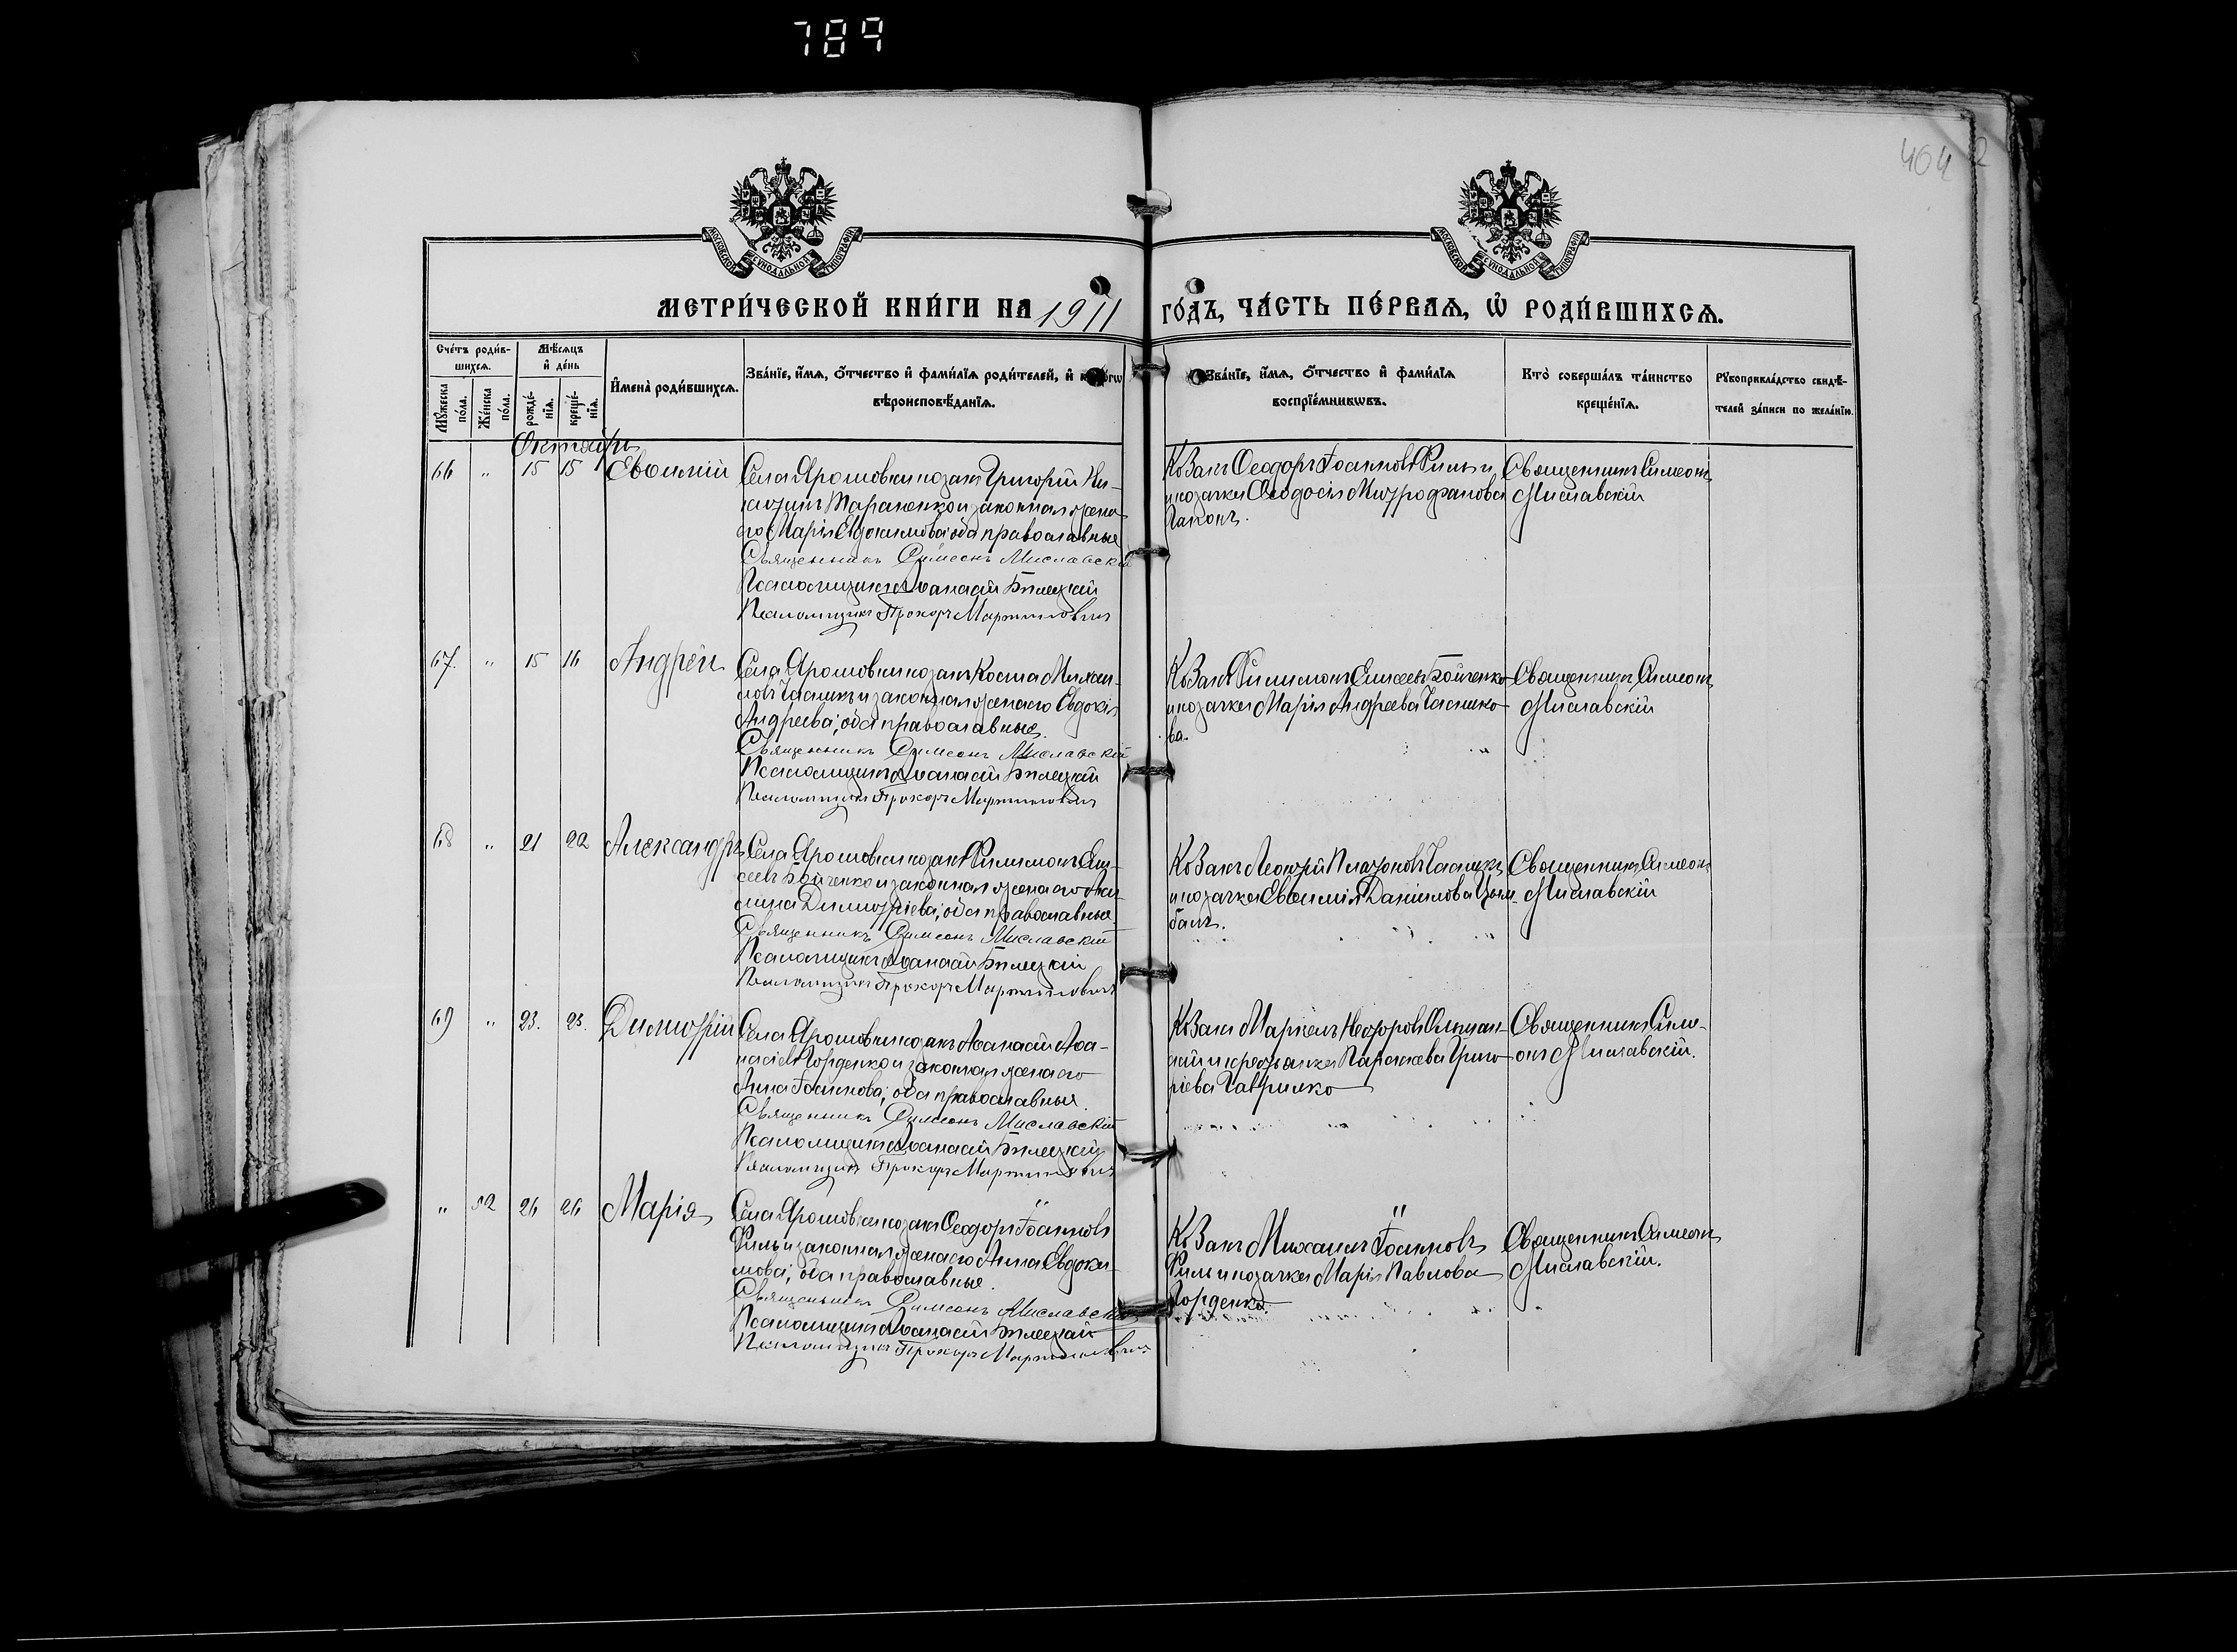 789
404
МОСКОВСКОЙ СѴНОДАЛЬНОЙ ТИПОГРАФІИ
МОСКОВСКОЙ СѴНОДАЛЬНОЙ ТИПОГРАФІИ
МЕТРИ́ЧЕСКОЙ КНИ́ГИ НА 1911 ГО́ДЪ, ЧА́СТЬ ПЕ́РВАѦ, Ѡ҆ РОДИ́ВШИХСѦ.
Сче́тъ роди́в-
шихсѧ.
Мꙋ́жеска по́ла.
Же́нска по́ла.
Мѣ́сѧцъ и҆ де́нь
рожде́-
нїѧ.
креще́-
нїѧ.
И҆мена̀ роди́вшихсѧ.
Зва́нїе, и҆́мѧ, ѻ҆́тчество и҆ фами́лїѧ роди́телей, и҆
вѣроисповѣ́данїѧ.
Зва́нїе, и҆́мѧ, ѻ҆́тчество и҆ фами́лїѧ
воспрїе́мникѡвъ.
Кто̀ соверша́лъ та́инство
креще́нїѧ.
Рꙋкоприкла́дство свидѣ́-
телей за́писи по жела́нїю.
Октябрь
66 " 15 15 Евѳимій
Села Ярошовки козакъ Григорій Ни-
китинъ Тараненко и законная жена
его Марія Евдокимова; оба православные
Священникъ Симеонъ Миславскій
Псаломщикъ Аѳанасій Билецкій
Псаломщикъ Прохоръ Мартиновичъ
Козакъ Ѳеодоръ Іоанновъ Филь и
козачка Ѳеодосія Митрофанова
Священникъ Симеонъ
Миславскій
67. " 15 16 Андрей
Села Ярошовки козакъ Косма Михаи-
ловъ Часныкъ и законная жена его Евдокія
Андреева; оба православные.
Священникъ Симеонъ Миславскій
Псаломщикъ Аѳанасій Билецкій
Псаломщикъ Прохоръ Мартиновичъ
Козакъ Филимонъ Елисеевъ Бойченко
и козачка Марія Андреева Часныко-
ва.
Священникъ Симеонъ
Миславскій
68 " 21 22 Александръ
Села Ярошовки козакъ Филимонъ Ели-
сеевъ Бойченко и законная жена его Аку-
лина Димитріева; оба православные
Священникъ Симеонъ Миславскій
Псаломщикъ Аѳанасій Билецкій
Псаломщикъ Прохоръ Мартиновичъ
Козакъ Леонтій Платоновъ Часныкъ
и козачка Евѳимія Даніилова Цым-
балъ.
Священникъ Симеонъ
Миславскій
69 " 23. 23. Димитрій
Села Ярошовки козакъ Аѳанасій Аѳа-
насіевъ Гординко и законная жена его
Анна Іоаннова; оба православные.
Священникъ Симеонъ Миславскій
Псаломщикъ Аѳанасій Билецкій
Псаломщикъ Прохоръ Мартиновичъ
Козакъ Маркелъ
и крестьянка Параскева Григо-
ріева Гаврилко
Священникъ Симе-
онъ Миславскій.
" 52 26 26 Марія
Села Ярошовки козакъ Ѳеодоръ Іоанновъ
Филь и законная жена его Анна Евдоки-
мова; оба православные.
Священникъ Симеонъ Миславскій
Псаломщикъ Аѳанасій Билецкій
Псаломщикъ Прохоръ Мартиновичъ
Козакъ Михаилъ Іоанновъ
Филь и козачка Марія Павлова
Горденко.
Священникъ Симеонъ
Миславскій.